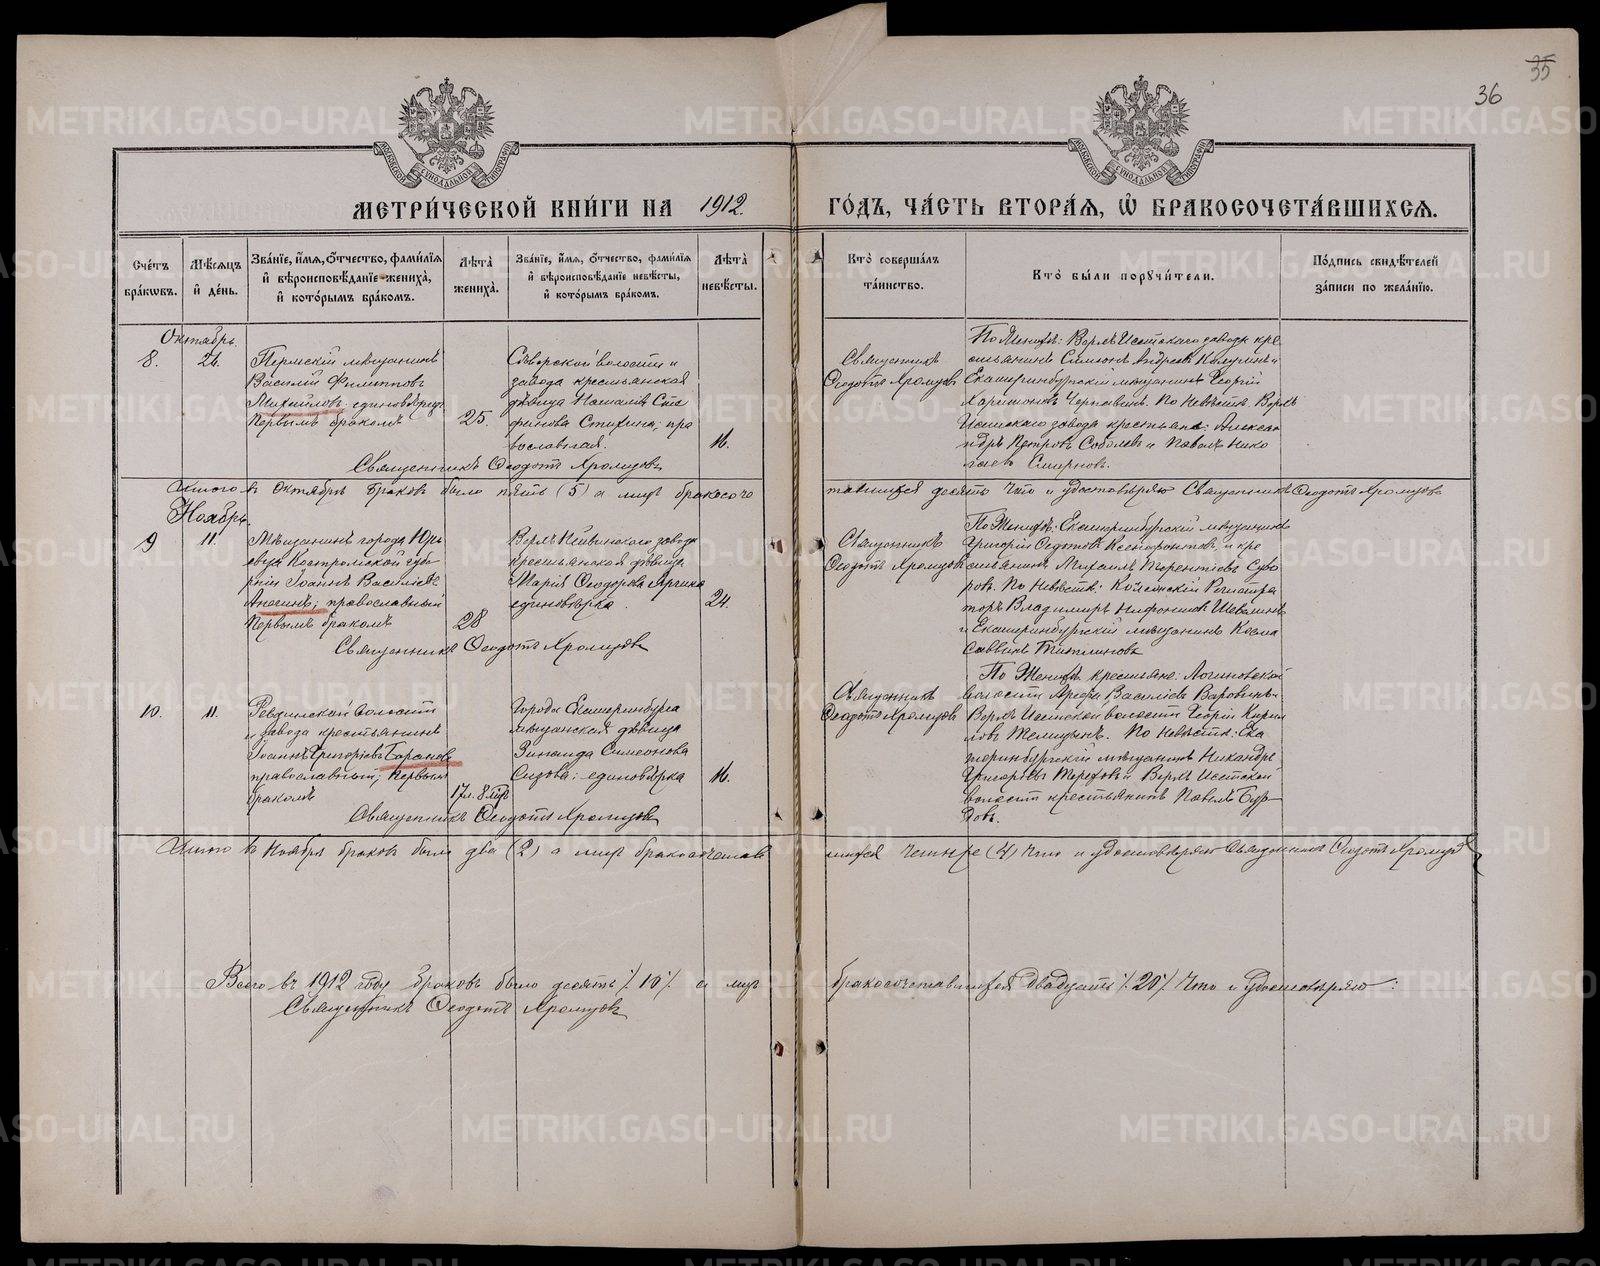 35
36
МЕТРИ́ЧЕСКОЙ КНИ́ГИ НА 1912 ГО́ДЪ, ЧА́СТЬ ВТОРА́Ѧ, Ѽ БРАКОСОЧЕТА́ВШИХСѦ.
Сче́тъ бра́кѡвъ.
Мѣ́сѧцъ и҆ де́нь.
Зва́нїе, и҆́мѧ, ѻ҆́тчество, фами́лїѧ и҆ вѣроисповѣ́данїе жениха̀, и҆ кото́рымъ бра́комъ.
Лѣ́та жениха̀.
Зва́нїе, и҆́мѧ, ѻ҆́тчество, фами́лїѧ и҆ вѣроисповѣ́данїе невѣ́сты, и҆ кото́рымъ бра́комъ.
Лѣ́та невѣ́сты.
Кто̀ соверша́лъ та́инство.
Кто̀ бы́ли порꙋчи́тели.
По́дпись свидѣ́телей за́писи по жела́нїю.
Октябрь.
8.
21.
Пермскій мѣщанинъ
Василій Филипповъ
Михайловъ единовѣрецъ
Первымъ бракомъ
25.
волости и
завода крестьянская
дѣвица Наталія Сте
фанова пра
вославная.
16.
Священникъ
Ѳеодотъ Хромцовъ
По Женихѣ: Верхъ Исетскаго завода кре
стьянинъ Симеонъ Андреевъ и
Екатеринбургскій мѣщанинъ Георгій
Харитоновъ По Невѣстѣ: Верхъ
Исетскаго завода крестьяне: Алексан
дръ Петровъ Соболевъ и Павелъ Нико
лаевъ Смирновъ.
Священникъ Ѳеодотъ Хромцовъ
Итого въ Октябрѣ браковъ было пять (5) а лицъ бракосоче
тавшихся десять Что и удостовѣряю Священникъ Ѳеодотъ Хромцовъ
Ноябрь.
9
11.
Мѣщанинъ города Юрь
евца Костромской губер
ніи Іоаннъ Василіевъ
православный
Первымъ бракомъ
28
Верхъ Нейвинскаго завода
крестьянская дѣвица
Марія Ѳеодорова
единовѣрка.
24.
Священникъ
Ѳеодотъ Хромцовъ
По Женихѣ: Екатеринбургскій мѣщанинъ
Григорій Ѳедотовъ Ксенофонтовъ, и кре
стьянинъ Михаилъ Терентіевъ Суво
ровъ. По Невѣстѣ: Коллежскій Регистра
торъ Владимиръ Нифонтовъ Шевелинъ
и Екатеринбургскій мѣщанинъ Косма
Саввинъ
Священникъ Ѳеодотъ Хромцовъ
10.
11.
Ревдинской волости
и завода крестьянинъ
Іоаннъ Григорьевъ Барановъ
православный; Первымъ
бракомъ
17 л. 8 мѣс
Города Екатеринбурга
мѣщанская дѣвица
Зинаида Симеонова
Сизова; единовѣрка
16.
Священникъ
Ѳеодотъ Хромцовъ
По Женихѣ крестьяне: Логиновской
волости Арефа Василіевъ
Верхъ Исетской волости Георгій Кирил
ловъ По Невѣстѣ: Ека
теринбургскій мѣщанинъ Никандръ
Григорьевъ и Верхъ Исетской
волости крестьянинъ Павелъ Бур
довъ.
Священникъ Ѳеодотъ Хромцовъ
Итого въ Ноябрѣ браковъ было два (2) а лицъ бракосочетав
шихся четыре (4) Что и удостовѣряю Священникъ Ѳеодотъ Хромцовъ
Всего въ 1912 году браковъ было десять /10/ а лицъ бракосочетавшихся двадцать /20/ Что и удостовѣряю:
Священникъ Ѳеодотъ Хромцовъ
METRIKI.GASO-URAL.RU